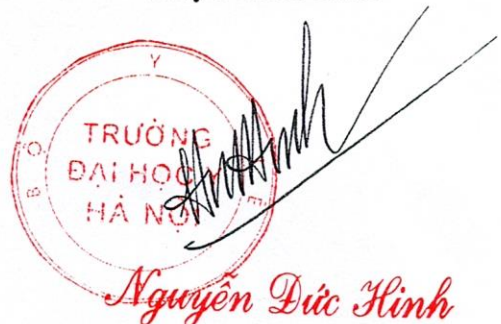 BỘ Y TẾ
TRƯỜNG
ĐẠI HỌC Y
HÀ NỘI
Nguyễn Đức Hinh